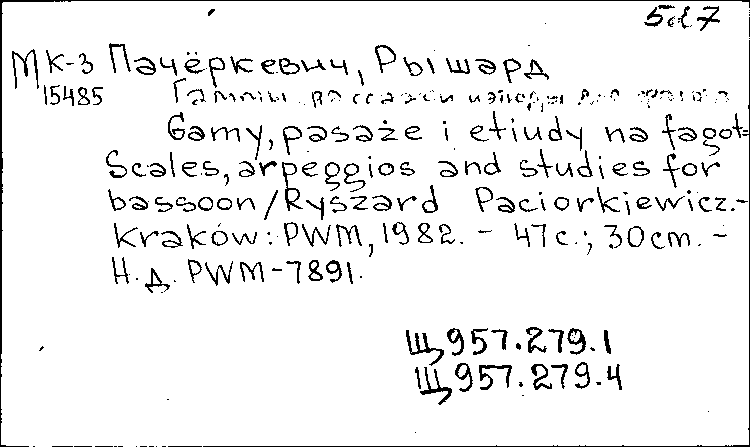 5d7
МК-3 Пачёркевич, Рышард
15485 Гаммы, пассажи и этюды для фагота
Gamy, pasaże i etiudy na fagot=
Scales, arpeggios and studies for
bassoon/Ryszard Paciorkiewicz.-
Kraków: PWM, 1982. - 47с.; 30cm. -
Н.д. PWM-7891.
Щ957.279.1
Щ957.279.4